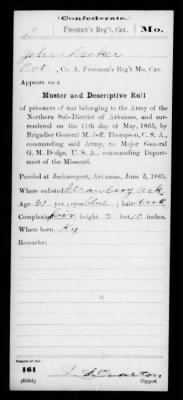 (Confederate.)
D Freeman's Reg't, Cav. Mo.
John Decker
Pvt, Co. A, Freeman's Reg't Mo. Cav.
Appears on a
Muster and Descriptive Roll
of prisoners of war belonging to the Army of the
Northern Sub-District of Arkansas, and sur-
rendered on the 11th day of May, 1865, by
Brigadier General M. Jeff. Thompson, C. S. A.,
commanding said Army, to Major General
G. M. Dodge, U. S. A., commanding Depart-
ment of the Missouri.
Paroled at Jacksonport, Arkansas, June 5, 1865.
Where enlisted Strawberry Ark
Age yrs; eyes blue; hair dark
Complexion fair; height 5 feet 10 inches.
Where born Ky
Remarks:
Number of roll:
161
(636b)
Copyist.